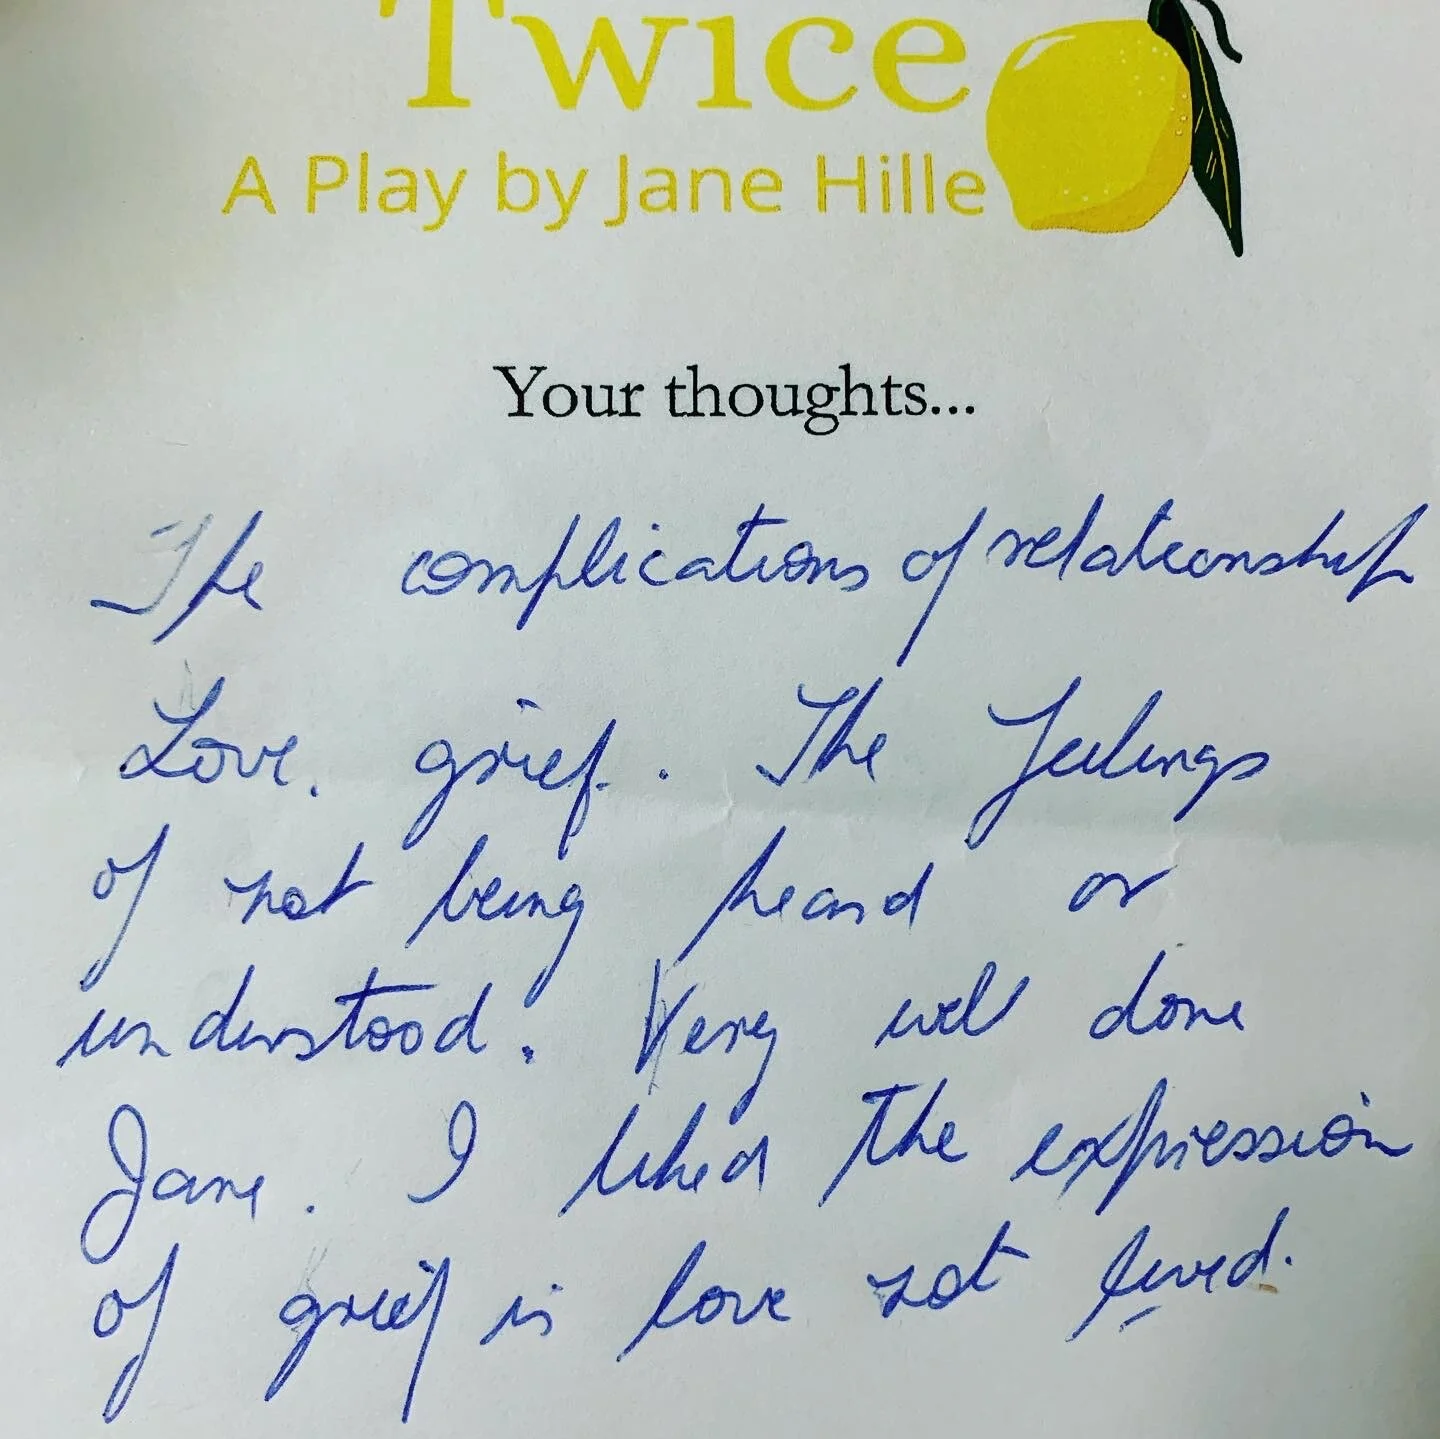 Twice
A Play by Jane Hille
Your thoughts...
The complications of relationship
Love. grief. The feelings
of not being heard or
understood. Very well done
Jane. I liked the expression
of grief is love not lived.